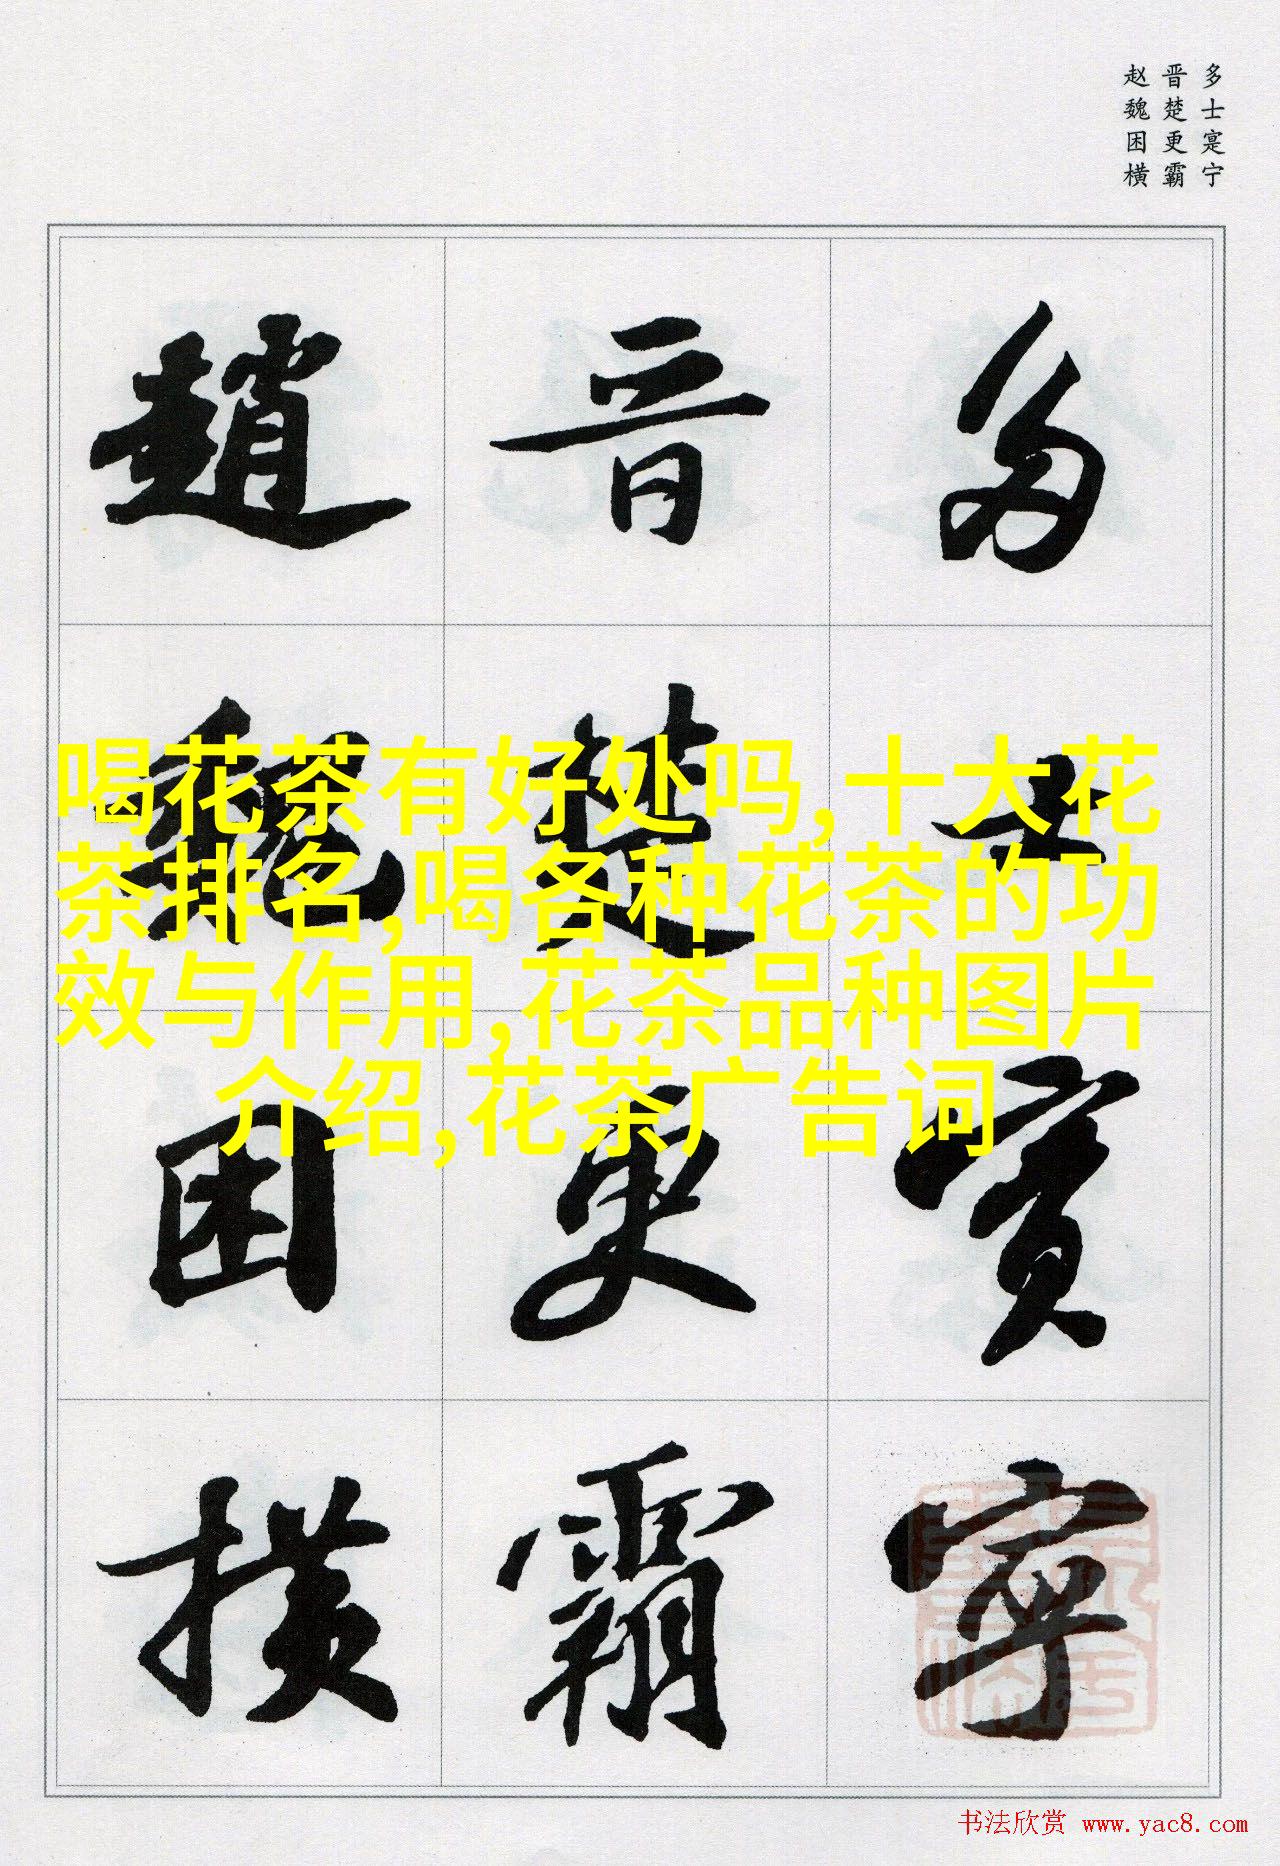 多士寔宁
晋楚更霸
赵魏困横
多士寔寧
晉楚更霸
趙魏困横
喝花茶有好处吗,十大花
茶排名,喝各种花茶的功
效与作用,花茶品种图片
介绍,花茶广告词
书法欣赏 www.yac8.com